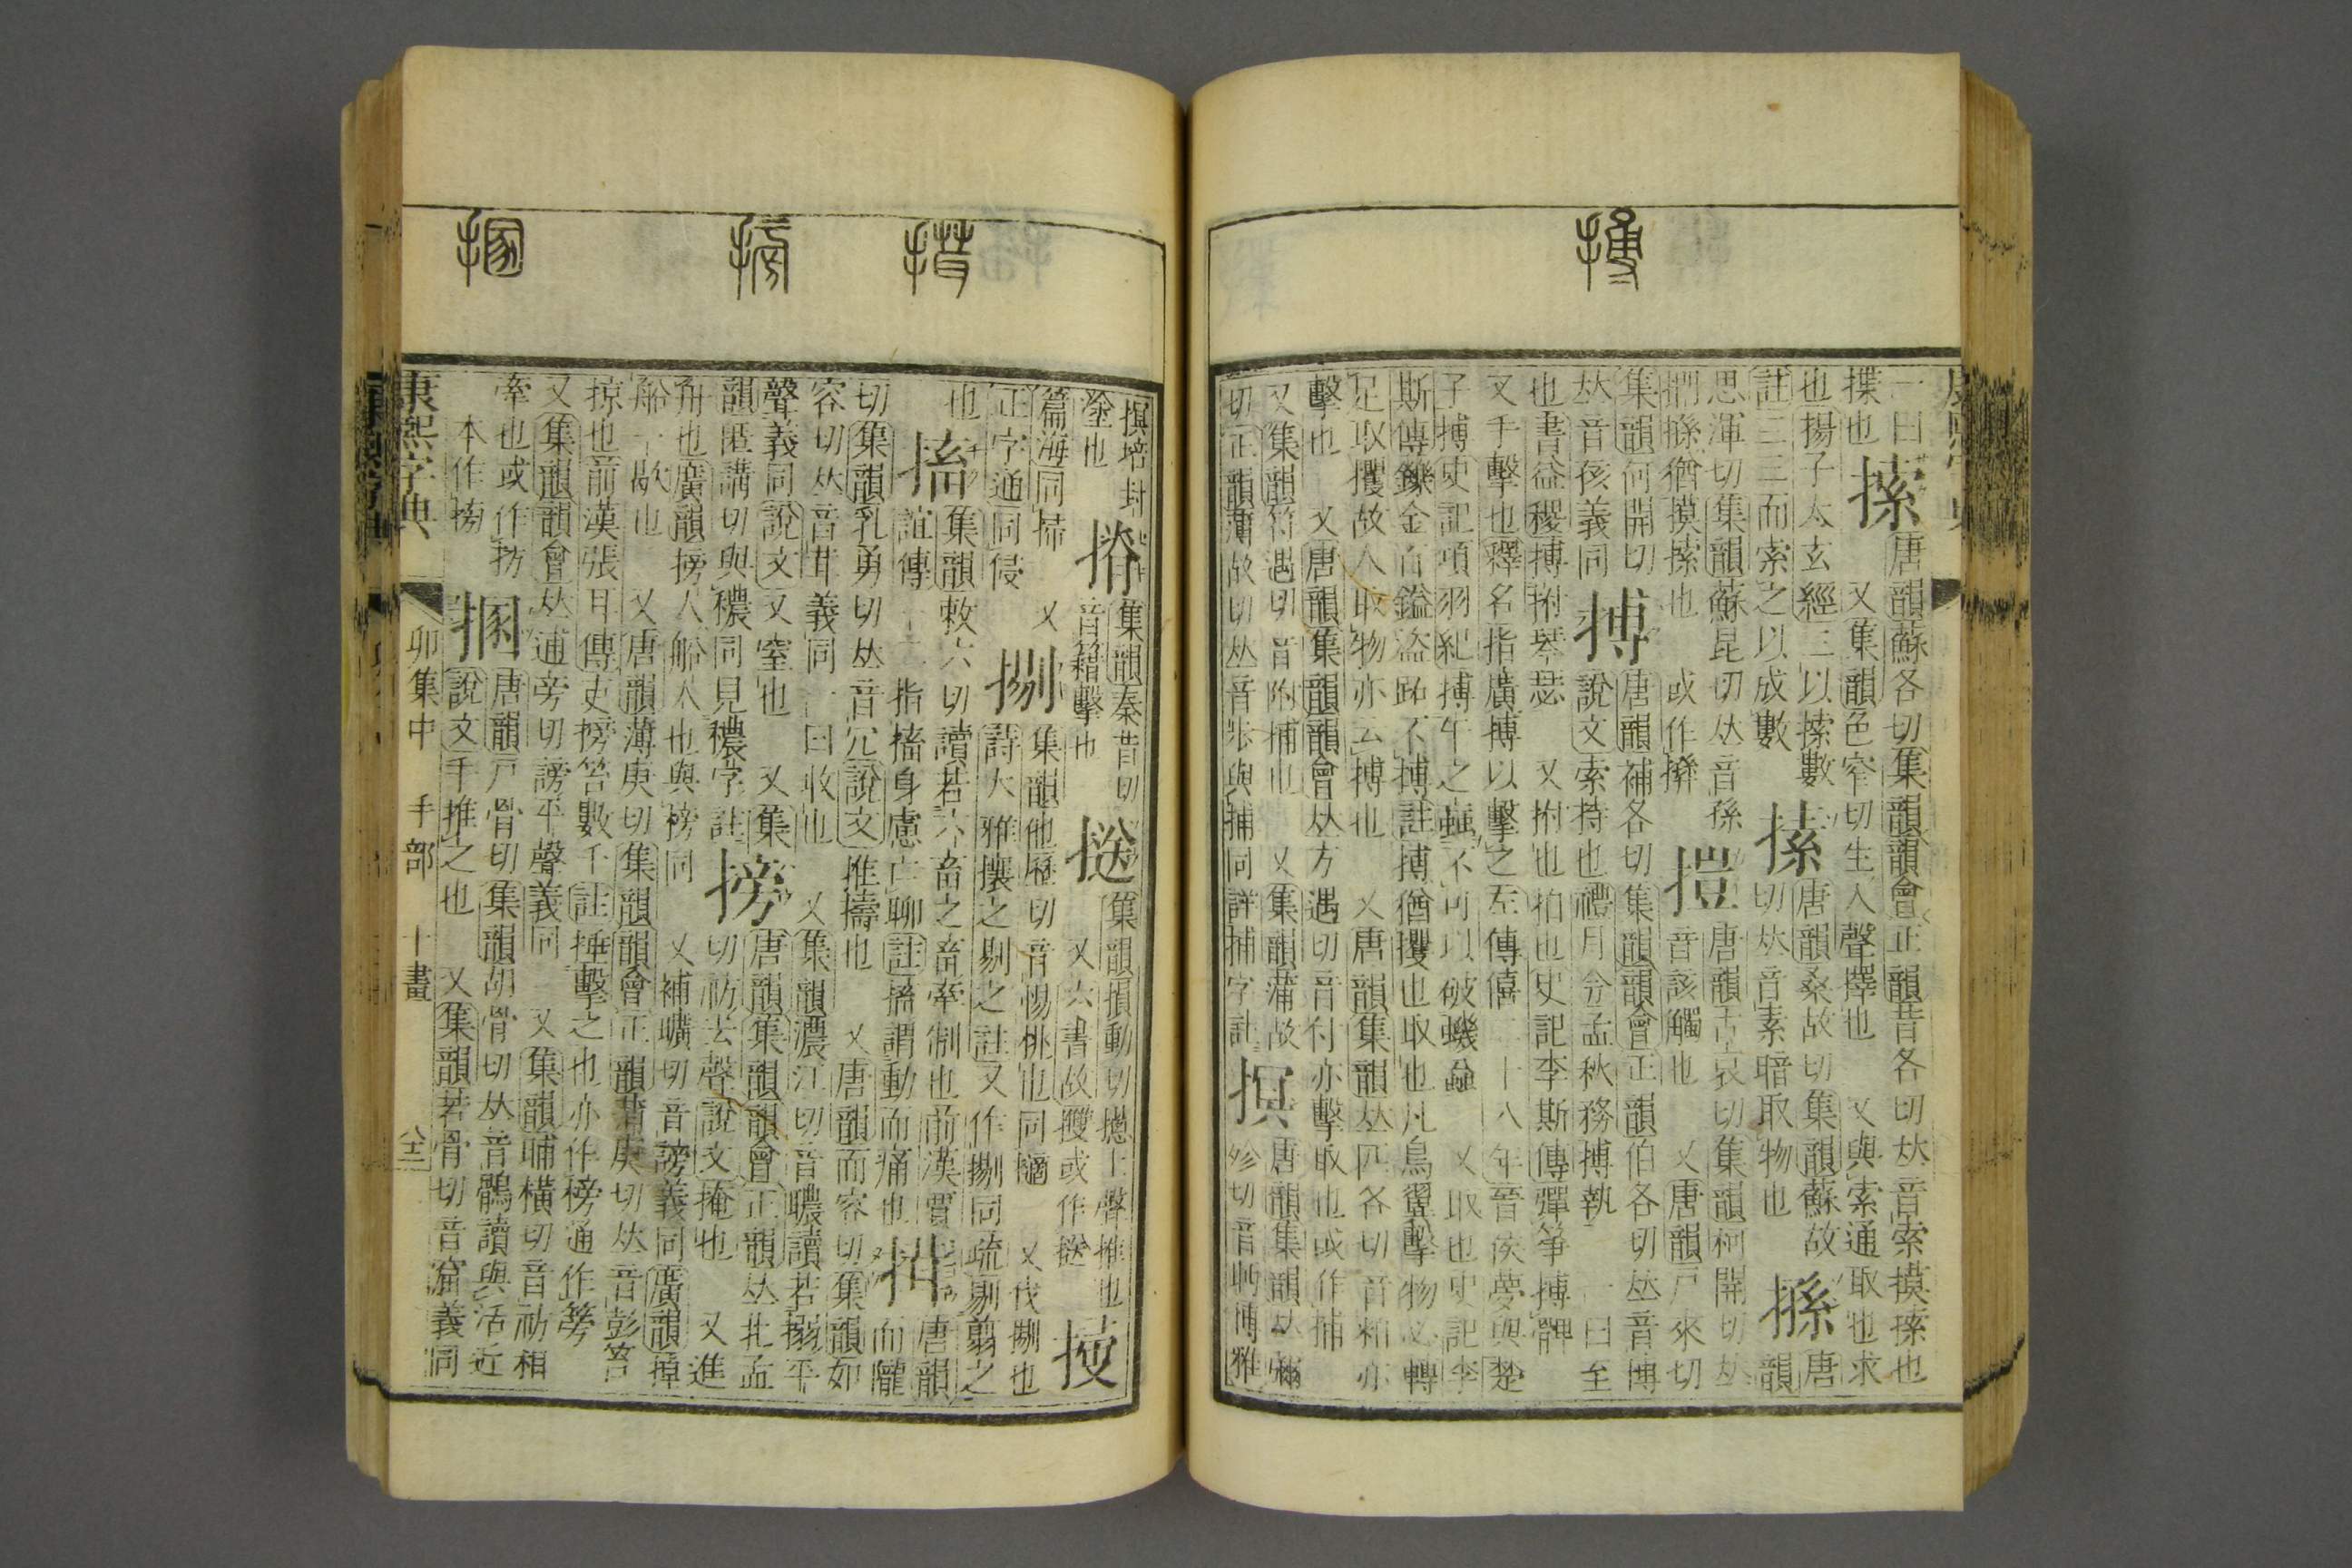 搏
一曰 𢱢 唐韻蘇各切集韻韻會正韻昔各切𠀤音索摸𢱢也
揲也 又集韻色窄切生入聲擇也 又與索通取也求
也揚子太玄經三以𢱢數 㨞 唐韻桑故切集韻蘇故 搎 唐
註三三而索之以成數 切𠀤音素暗取物也 韻
思渾切集韻蘇昆切𠀤音孫 㨟 唐韻古哀切集韻柯開切𠀤
捫搎猶摸𢱢也 或作 音該觸也 又唐韻戸來切
集韻何開切 搏 唐韻補各切集韻韻會正韻伯各切𠀤音博
𠀤音孩義同 說文索持也禮月令孟秋務搏執 一曰至
也書益稷搏拊琴瑟 又拊也拍也史記李斯傳彈箏搏髀
又手擊也釋名指廣搏以擊之左傳僖二十八年晉侯夢與楚
子搏史記項羽紀搏牛之蝱不可以破蟣蝨 又取也史記李
斯傳鑠金百鎰盜跖不搏註搏猶攫也取也凡鳥翼擊物必轉
足取攫故人取物亦云搏也 又唐韻集韻𠀤匹各切音粕亦
擊也 又唐韻集韻韻會𠀤方遇切音付亦擊取也或作捕
又集韻符遇切音附捕也 又集韻蒲故 唐韻集韻𠀤
切正韻薄故切𠀤音步與捕同詳捕字註 切音眄博雅
搘
塗也 集韻秦昔切 音籍擊也 集韻損動切摠上聲推也
又六書故㩳或作
篇海同掃 又 集韻他歷切音惕挑也同擿 又伐㨝也
正字通同侵 㨝 詩大雅攘之剔之註又作㨝同疏剔翦之
也 搐 集韻敕六切讀若六畜之畜牽制也前漢賈 搑 唐韻
誼傳一二指搐身慮亡聊註搐謂動而痛也 而隴
切集韻乳勇切𠀤音宂說文推擣也 又唐韻而容切集韻如
容切𠀤音茸義同一曰收也 又集韻濃江切音聬讀若搦平
聲義同說文又窒也 又集 搒 唐韻集韻韻會正韻𠀤北孟
韻匿講切與䥥同見䥥字註 切祊去聲說文掩也 又進
舟也廣韻搒人船人也與榜同 又補曠切音謗義同廣韻掉
船一歇也 又唐韻薄庚切集韻韻會正韻蒲庚切𠀤音彭笞
掠也前漢張耳傳吏搒笞數千註捶擊之也亦作榜通作篣
又集韻韻會𠀤逋旁切謗平聲義同 又集韻晡橫切音祊相
牽也或作㧍 搰 唐韻戸骨切集韻胡骨切𠀤音鶻讀與活近
本作搒 說文手推之也 又集韻苦骨切音窟義同
康熙字典 卯集中 手部 十畫